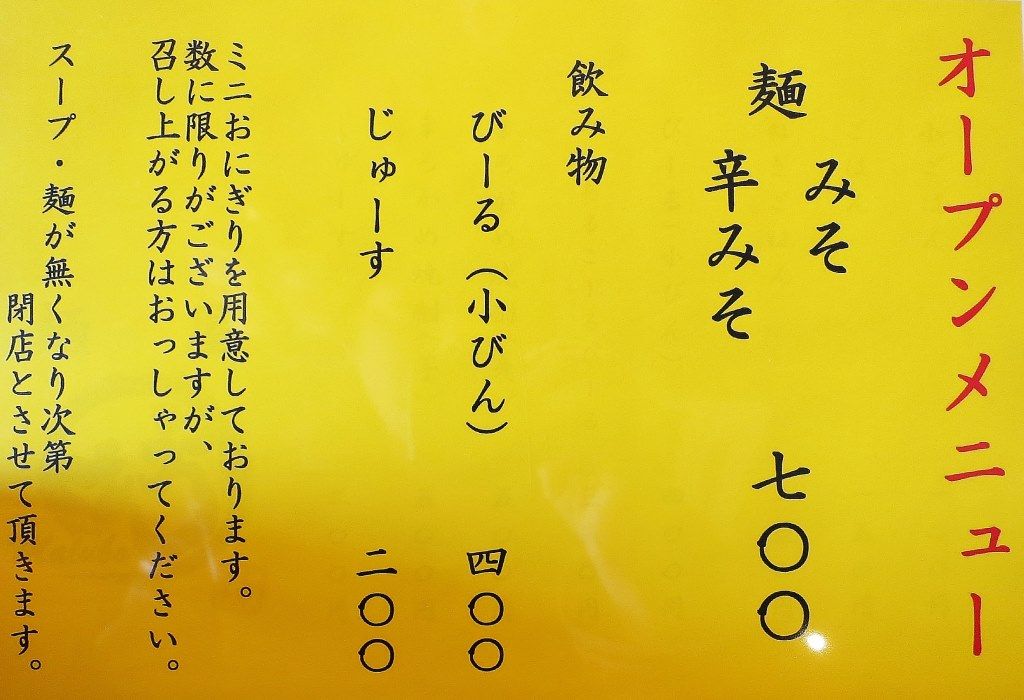 オープンメニュー
麺 みそ
辛みそ
七〇〇
飲み物
びーる(小びん) 四〇〇
じゅーす 二〇〇
ミニおにぎりを用意しております。
数に限りがございますが、
召し上がる方はおっしゃってください。
スープ・麺が無くなり次第
閉店とさせて頂きます。